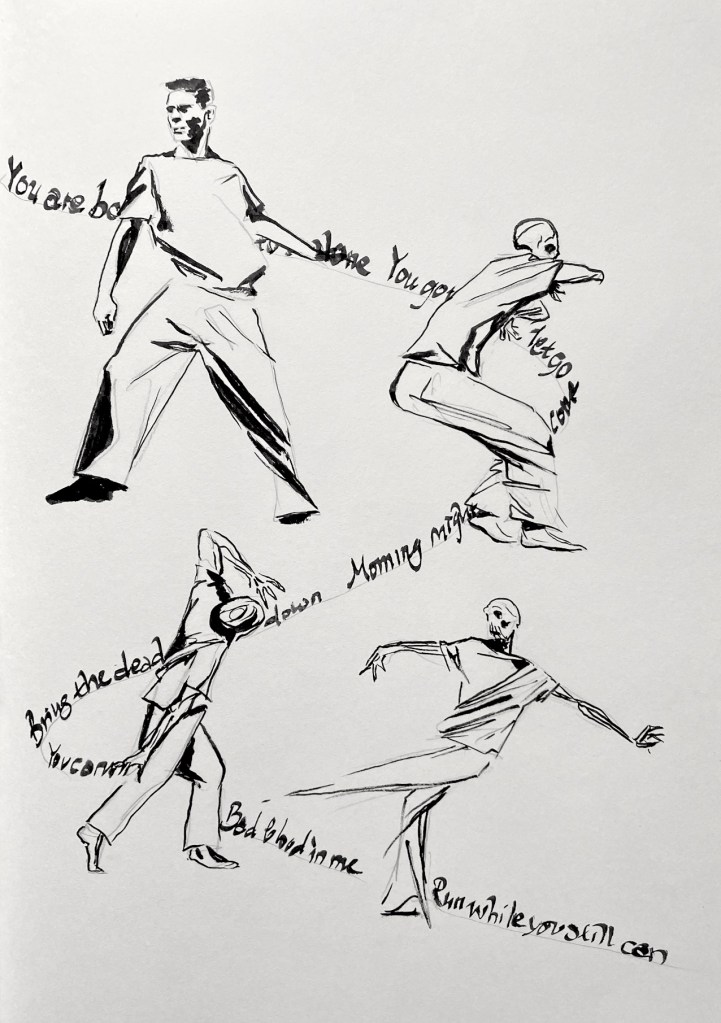 You are bo
alone You got
let go
come
Morning might
down
Bring the dead
You can run
Bad blood in me
Run while you still can